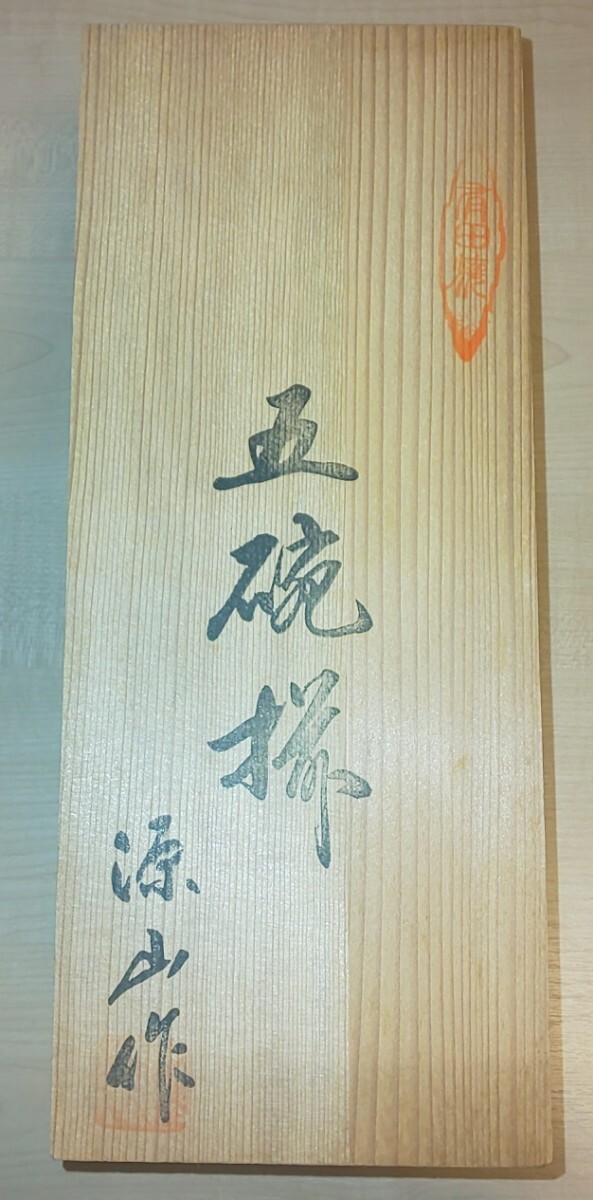 有田焼
五碗揃
源山作